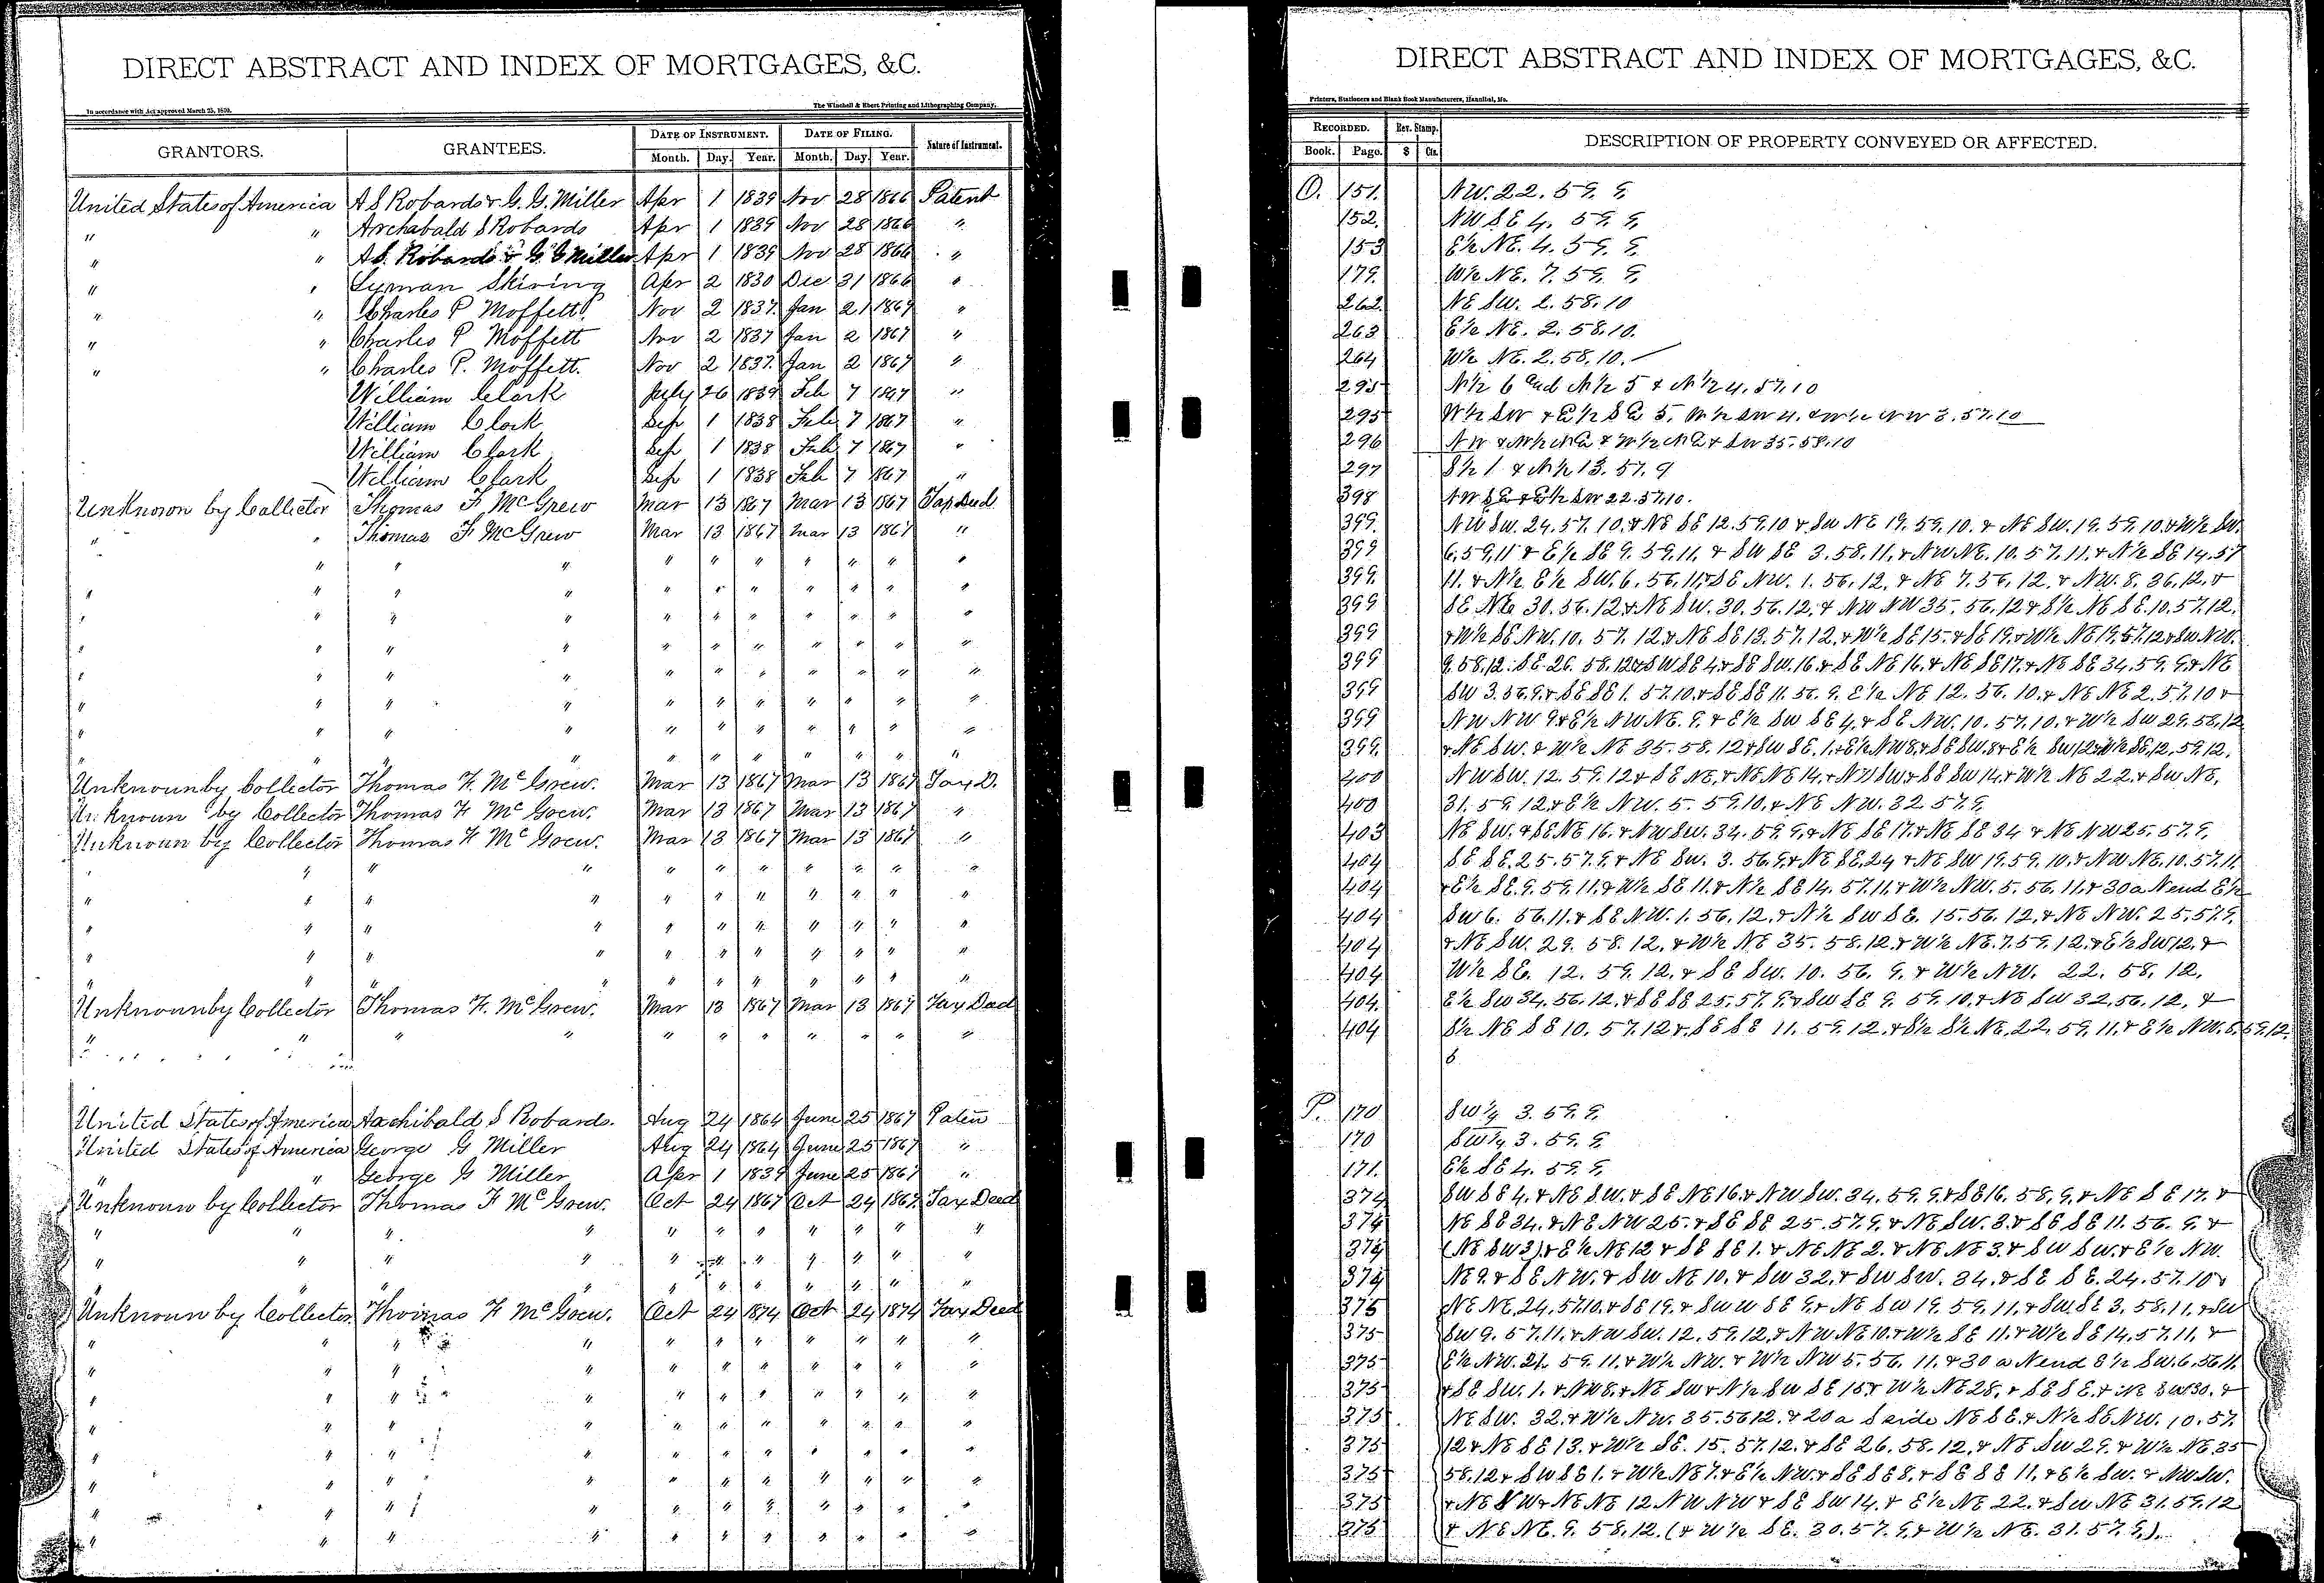 DIRECT ABSTRACT AND INDEX OF MORTGAGES, &C.
In accordance with Act approved March 25, 1859.
The Winchell & Ebert Printing and Lithographing Company.
GRANTORS. GRANTEES. DATE OF INSTRUMENT. DATE OF FILING. Nature of Instrument.
Month. Day. Year. Month. Day. Year.
United States of America A S Robards & G. G. Miller Apr 1 1839 Nov 28 1866 Patent
" " Archabald S Robards Apr 1 1839 Nov 28 1866 "
" " A S. Robards & G. G Miller Apr 1 1839 Nov 28 1866 "
" " Lyman Skiving Apr 2 1830 Dec 31 1866 "
" " Charles P Moffett. Nov 2 1837. Jan 21 1867 "
" " Charles P Moffett Nov 2 1837 Jan 2 1867 "
" " Charles P. Moffett. Nov 2 1837. Jan 2 1867 "
William Clark July 26 1839 Feb 7 1867 "
William Clark Sep 1 1838 Feb 7 1867 "
William Clark Sep 1 1838 Feb 7 1867 "
William Clark Sep 1 1838 Feb 7 1867 "
Unknown by Collector Thomas F McGrew Mar 13 1867 Mar 13 1867 Tax Deed
" " Thomas F McGrew Mar 13 1867 Mar 13 1867 "
" " " " " " " " " " "
" " " " " " " " " " "
" " " " " " " " " " "
" " " " " " " " " " "
" " " " " " " " " " "
" " " " " " " " " " "
" " " " " " " " " " "
" " " " " " " " " " "
Unknown by Collector Thomas F. McGrew. Mar 13 1867 Mar 13 1867 Tax D.
Unknown by Collector Thomas F McGrew. Mar 13 1867 Mar 13 1867 "
Unknown by Collector Thomas F McGrew. Mar 13 1867 Mar 13 1867 "
" " " " " " " " " " "
" " " " " " " " " " "
" " " " " " " " " " "
" " " " " " " " " " "
" " " " " " " " " " "
Unknown by Collector Thomas F. McGrew. Mar 13 1867 Mar 13 1867 Tax Deed
" " " " " " " " " " "
United States of America Archibald S Robards. Aug 24 1864 June 25 1867 Paten
United States of America George G Miller Aug 24 1864 June 25 1867 "
" " George G Miller Apr 1 1839 June 25 1867 "
Unknown by Collector Thomas F McGrew. Oct 24 1867 Oct 24 1867. Tax Deed
" " " " " " " " " " "
" " " " " " " " " "
" " " " " " " " " " "
Unknown by Collector Thomas F McGrew. Oct 24 1874 Oct 24 1874 Tax Deed
" " " " " " " " " " "
" " " " " " " " " " "
" " " " " " " " " " "
" " " " " " " " " " "
" " " " " " " " " " "
" " " " " " " " " " "
" " " " " " " " " " "
" " " " " " " " " " "
DIRECT ABSTRACT AND INDEX OF MORTGAGES, &C.
Printers, Stationers and Blank Book Manufacturers, Hannibal, Mo.
RECORDED. Rev. Stamp. DESCRIPTION OF PROPERTY CONVEYED OR AFFECTED.
Book. Page. $ Cts.
O. 151. NW. 22. 59. 9.
152. NW SE 4. 59. 9.
153 E½ NE. 4. 59. 9.
179. W½ NE. 7. 59. 9.
262. NE SW. 2. 58. 10
263 E½ NE. 2. 58. 10.
264 W½ NE. 2. 58. 10.
295 N½ 6 and N½ 5 & N½ 4. 57. 10
295 W½ SW & E½ SE 5. W½ SW 4. & W½ NW 3. 57. 10
296 NW & W½ NE & W½ NE & SW 35. 58. 10
297 S½ 1 & N½ 13. 57. 9
398 NW SE & E½ SW 22. 57. 10.
399. NW SW. 24. 57. 10. & NE SE 12. 59. 10 & SW NE 19. 59. 10. & NE SW. 19. 59. 10. & W½ SW.
399 6. 59. 11 & E½ SE 9. 59. 11. & SW SE 3. 58. 11. & NW NE. 10. 57. 11. & N½ SE 14. 57
399. 11. & N½ E½ SW. 6. 56. 11. & SE NW. 1. 56. 12. & NE 7. 56. 12. & NW. 8. 36. 12. &
399 SE NE 30. 56. 12. & NE SW. 30. 56. 12. & NW NW 35. 56. 12 & S½ NE SE. 10. 57. 12.
399 & W½ SE NW. 10. 57. 12. & NE SE 13. 57. 12. & W½ SE 15. & SE 19. & W½ NE 19. 57. 12 & SW NW.
399 9. 58. 12. SE 26. 58. 12 & SW SE 4. & SE SW. 16. & SE NE 16. & NE SE 17. & NE SE 34. 59. 9. & NE
399 SW 3. 56. 9. & SE SE 1. 57. 10. & SE SE 11. 56. 9. E½ NE 12. 56. 10. & NE NE 2. 57. 10 &
399 NW NW 9 & E½ NW NE. 9. & E½ SW SE 4. & SE NW. 10. 57. 10. & W½ SW 29. 58. 12
399. & NE SW. & W½ NE 35. 58. 12 & SW SE. 1. & E½ NW 8. & SE SW. 8 & E½ SW 12 & W½ SE. 12. 59. 12.
400 NW SW. 12. 59. 12 & SE NE. & NE NE 14. & NW SW & SE SW 14. & W½ NE 22. & SW NE.
400 31. 59. 12. & E½ NW. 5. 59. 10. & NE NW. 32. 57. 9.
403 NE SW. & SE NE 16. & NW SW. 34. 59. 9. & NE SE 17. & NE SE 34 & NE NW 25. 57. 9.
404 SE SE. 25. 57. 9. & NE SW. 3. 56. 9. & NE SE. 24 & NE SW 19. 59. 10. & NW NE. 10. 57. 11.
404 & E½ SE. 9. 59. 11. & W½ SE 11. & N½ SE 14. 57. 11. & W½ NW. 5. 56. 11. & 30 a N end E½
404 SW 6. 56. 11. & SE NW. 1. 56. 12. & N½ SW SE. 15. 56. 12. & NE NW. 25. 57. 9.
404 & NE SW. 29. 58. 12. & W½ NE 35. 58. 12. & W½ NE. 7. 59. 12. & E½ SW 12. &
404 W½ SE. 12. 59. 12. & SE SW. 10. 56. 9. & W½ NW. 22. 58. 12.
404. E½ SW 34. 56. 12. & SE SE 25. 57. 9. & SW SE 9. 59. 10. & NE SW 32. 56. 12. &
404 S½ NE SE 10. 57. 12 & SE SE 11. 59. 12. & S½ S½ NE. 22. 59. 11. & E½ NW. 5. 59. 12.
6
P. 170 SW¼ 3. 59. 9.
170 SW¼ 3. 59. 9
171. E½ SE 4. 59. 9.
374 SW SE 4. & NE SW. & SE NE 16. & NW SW. 34. 59. 9. & SE 16. 58. 9. & NE SE 17. &
374 NE SE 34. & NE NW 25. & SE SE 25. 57. 9. & NE SW. 3. & SE SE 11. 56. 9. &
374 (NE SW 3) & E½ NE 12 & SE SE 1. & NE NE 2. & NE NE 3. & SW SW. & E½ NW.
374 NE 9. & SE NW. & SW NE 10. & SW 32. & SW SW. 34. & SE SE. 24. 57. 10 &
375 NE NE. 24. 57. 10. & SE 19. & SW W SE 9. & NE SW 19. 59. 11. & SW. SE 3. 58. 11. & SW
375 SW 9. 57. 11. & NW SW. 12. 59. 12. & NW NE 10. & W½ SE 11. & W½ SE 14. 57. 11. &
375 E½ NW. 21. 59. 11. & W½ NW. & W½ NW 5. 56. 11. & 30 a N end E½ SW. 6. 56. 11.
375 & SE SW. 1. & NW 8. & NE SW & N½ SW SE 15. & W½ NE 28. & SE SE. & NE SW 30. &
375 NE SW. 32. & W½ NW. 35. 56 12. & 20 a S side NE SE. & N½ SE NW. 10. 57.
375 12 & NE SE 13. & W½ SE. 15. 57. 12. & SE 26. 58. 12. & NE SW 29. & W½ NE 35
375 58. 12 & SW SE 1. & W½ NE 7. & E½ NW. & SE SE 8. & SE SE 11. & E½ SW. & NW SW.
375 & NE SW & NE NE 12 NW NW & SE SW 14. & E½ NE 22. & SW NE 31. 59. 12
375 & NE NE. 9. 58. 12. (& W½ SE. 30. 57. 9. & W½ NE. 31. 57. 9.).